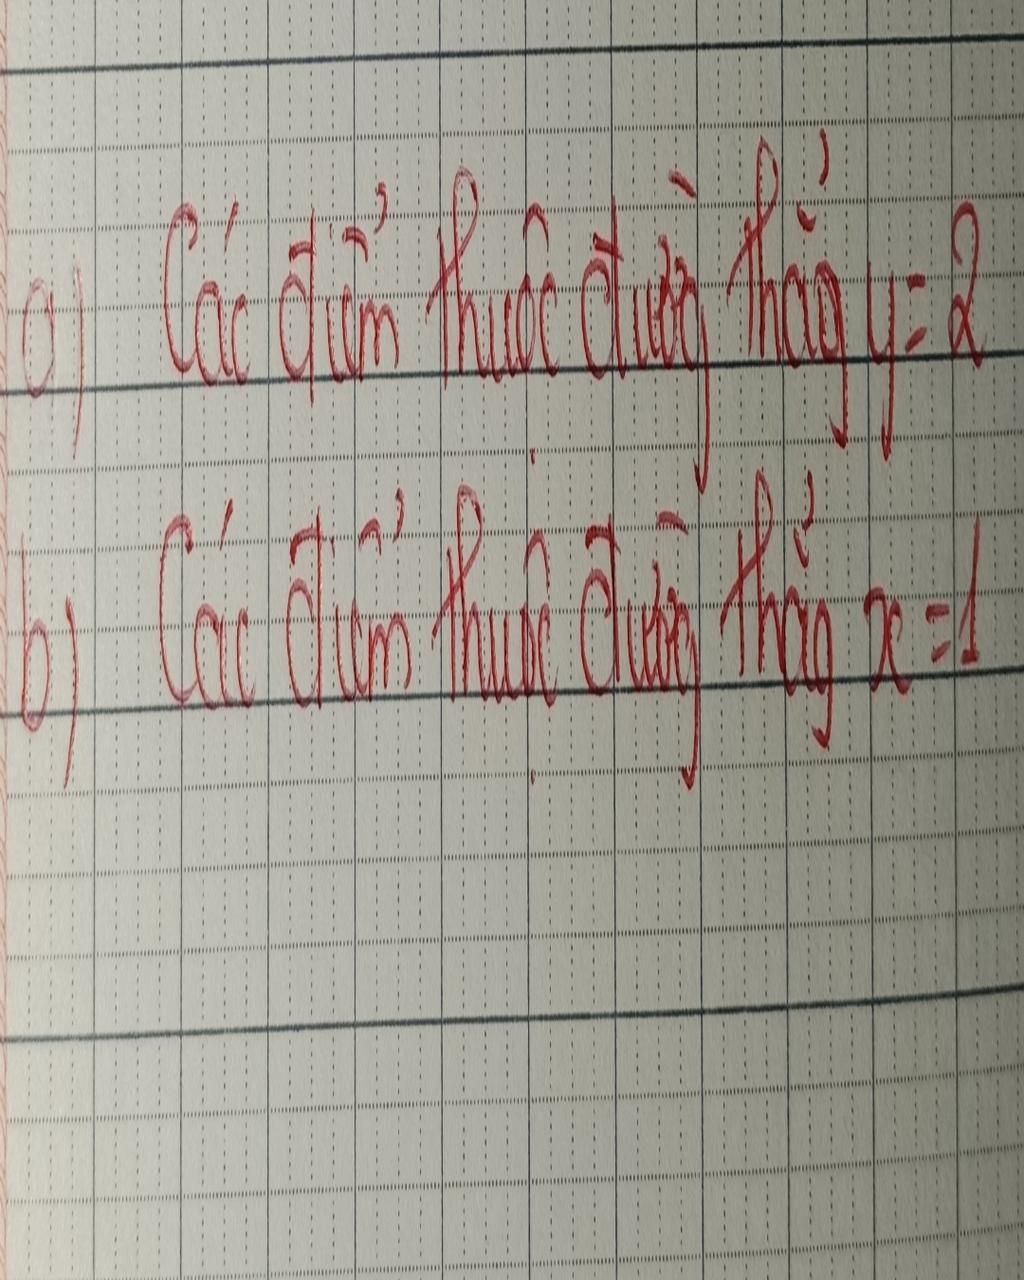 a) Các điểm thuộc đường thẳg y = 2
b) Các điểm thuộc đường thẳg x = 1